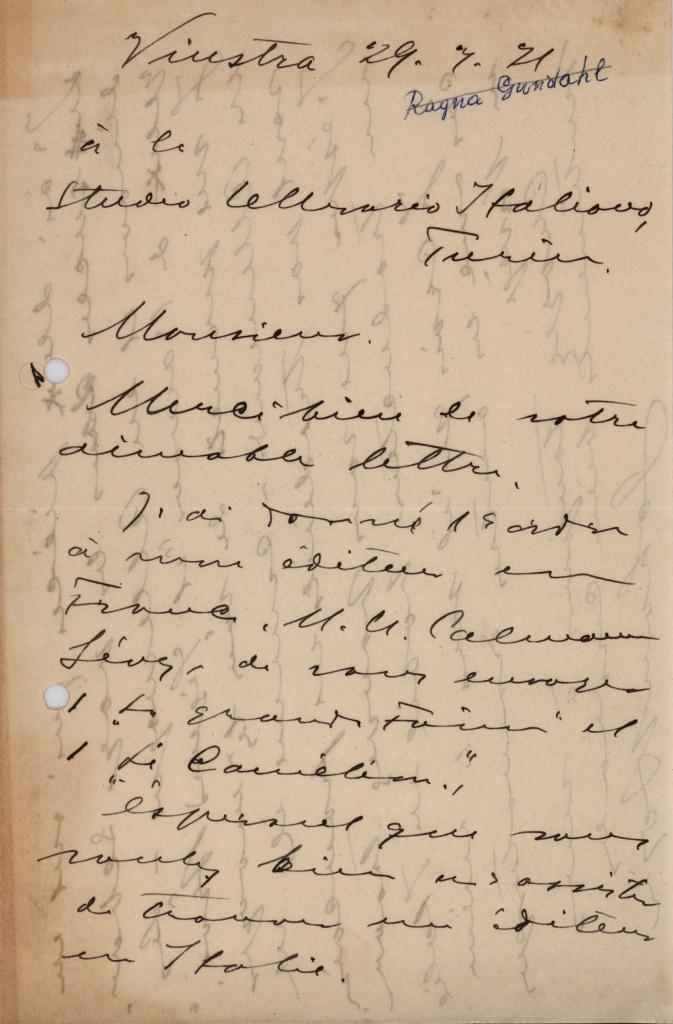 Vinstra 29. 7. 21
Ragna Gundahl
à le
Studio letterario Italiano,
Turin.
Monsieur.
Merci bien de votre
aimable lettre.
J'ai donné l'ordre
à mon éditeur en
France, M. M. Calmann
Lévy, de vous envoyer
1 "La grande Faim" et
1 "Le Caméléon."
Espérant que vous
voulez bien m'assister
de trouver un éditeur
en Italie.